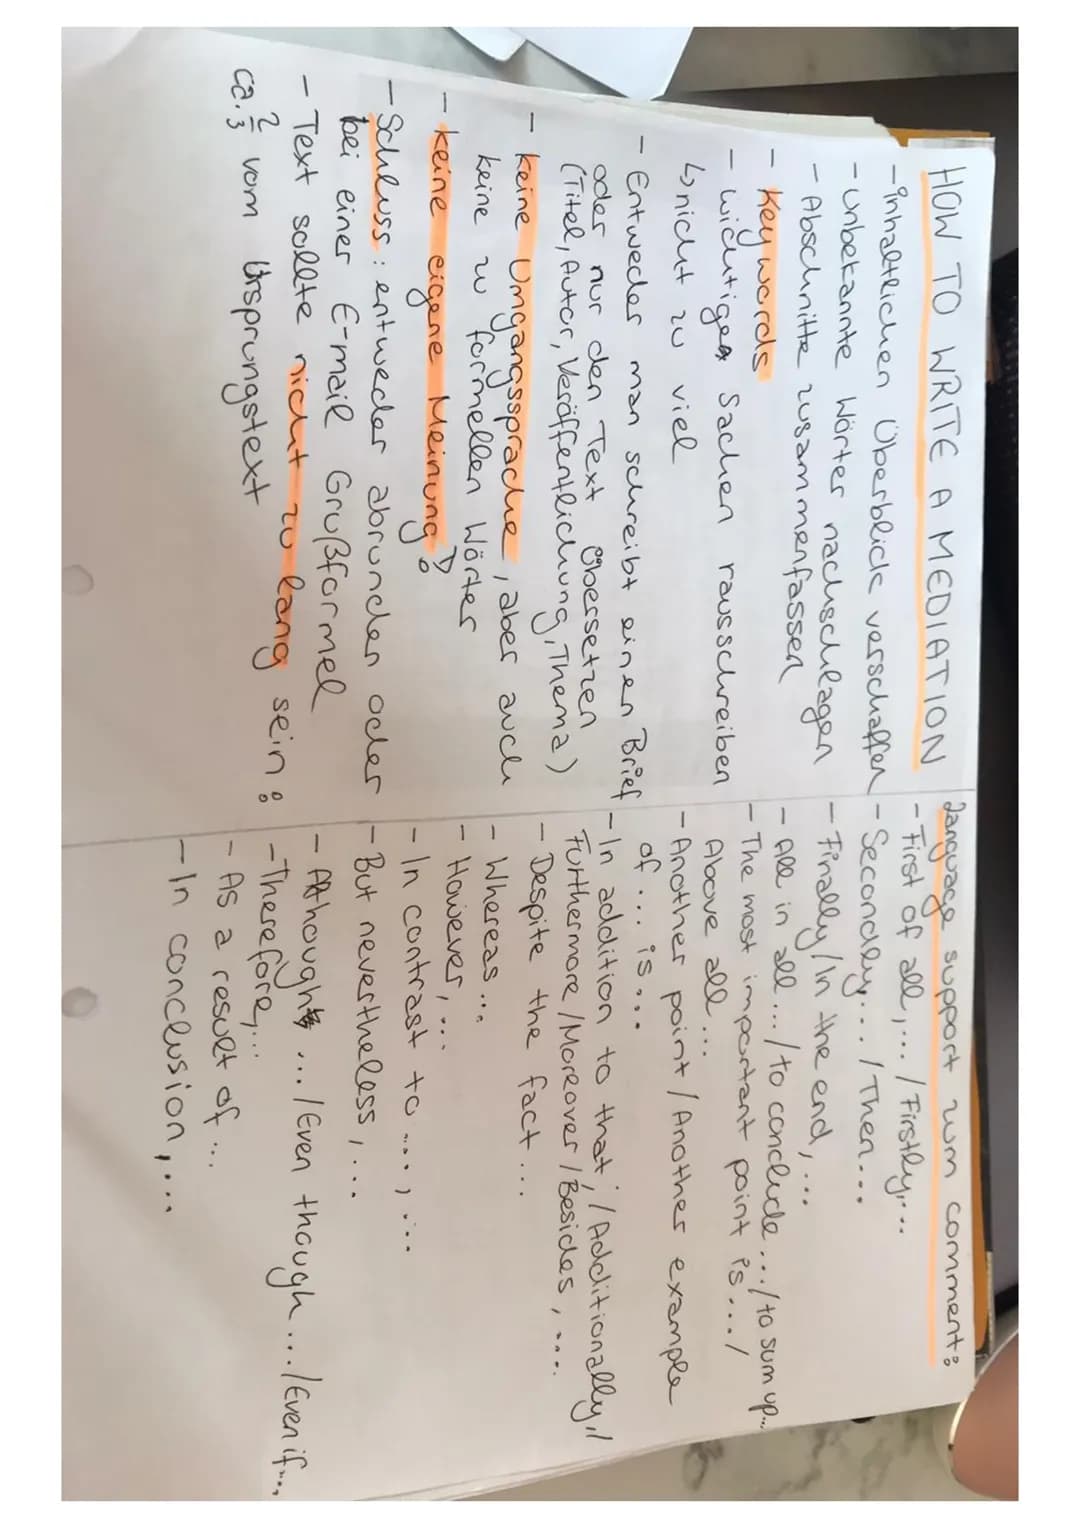 HOW TO WRITE A MEDIATION
- inhaltlichen Überblick verschaffen
- unbekannte Wörter nachschlagen
- Abschnitte zusammenfassen
- Key words
- wichtige Sachen rausschreiben
↳ nicht zu viel
- Entweder man schreibt einen Brief
oder nur den Text übersetzen
(Titel, Autor, Veröffentlichung, Thema)
- keine Umgangssprache, aber auch
keine zu formellen Wörter
- keine eigene Meinung!
- Schluss: entweder abrunden oder
bei einer E-mail Grußformel
- Text sollte nicht zu lang sein:
ca. 2/3 vom Ursprungstext
Language support zum comment:
- First of all,... / Firstly,...
- Secondly,... / Then...
- Finally / In the end,...
- All in all... / to conclude... / to sum up...
- The most important point is... /
Above all...
- Another point / Another example
of ... is...
- In addition to that, / Additionally, /
Furthermore / Moreover / Besides, ....
- Despite the fact...
- Whereas ...
- However, ...
- In contrast to ..., ...
- But nevertheless, ...
- Although ... / Even though ... / Even if ...,
- Therefore, ...
- As a result of ...
- In conclusion, ...